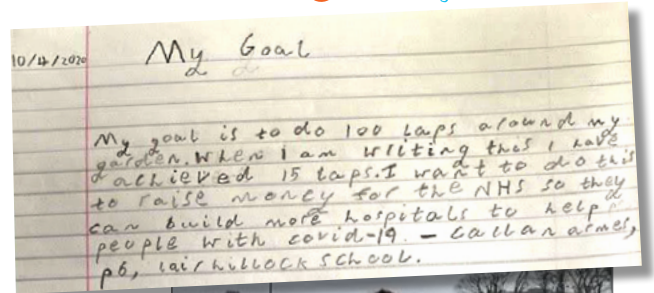 10/4/2020
My Goal
My goal is to do 100 laps around my
garden. When I am writing this I have
achieved 15 laps. I want to do this
to raise money for the NHS so they
can build more hospitals to help
people with covid-19. - Callan armes,
p6, lairhillock school.